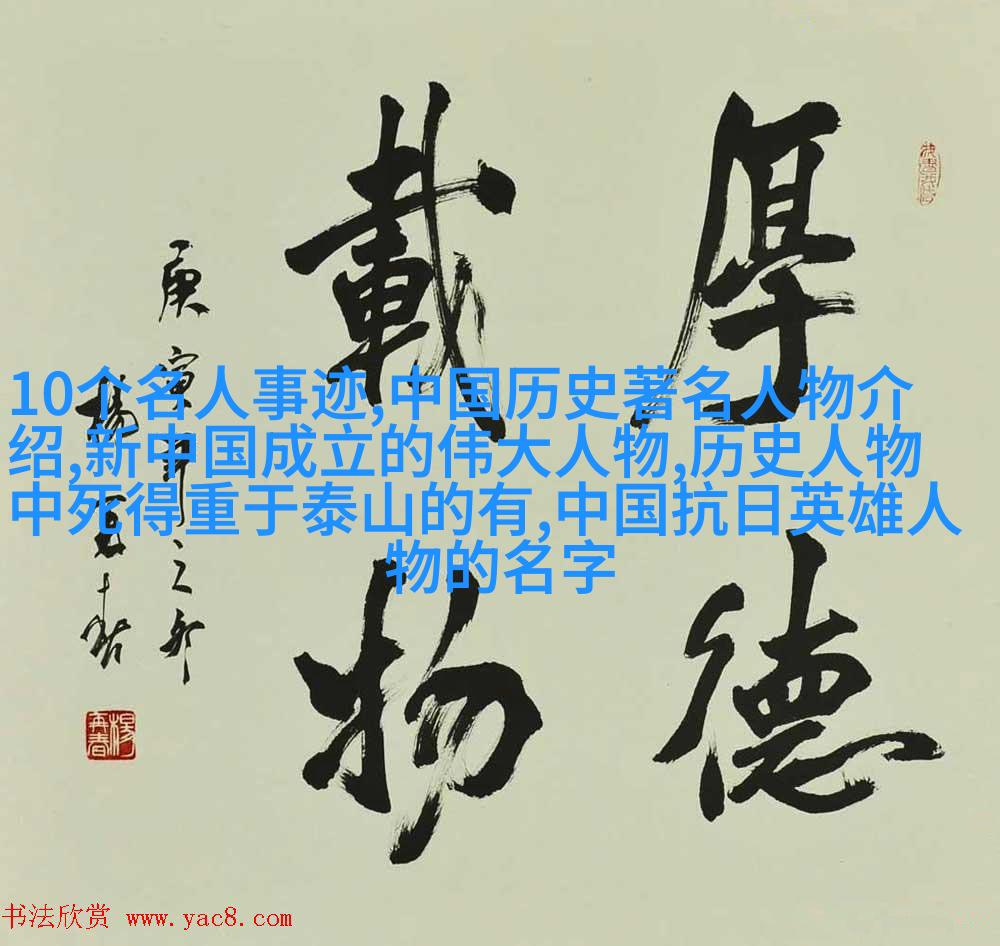 厚德
載物
庚寅年之郊
楊再春
楊再春
10个名人事迹,中国历史著名人物介
绍,新中国成立的伟大人物,历史人物
中死得重于泰山的有,中国抗日英雄人
物的名字
书法欣赏 www.yac8.com